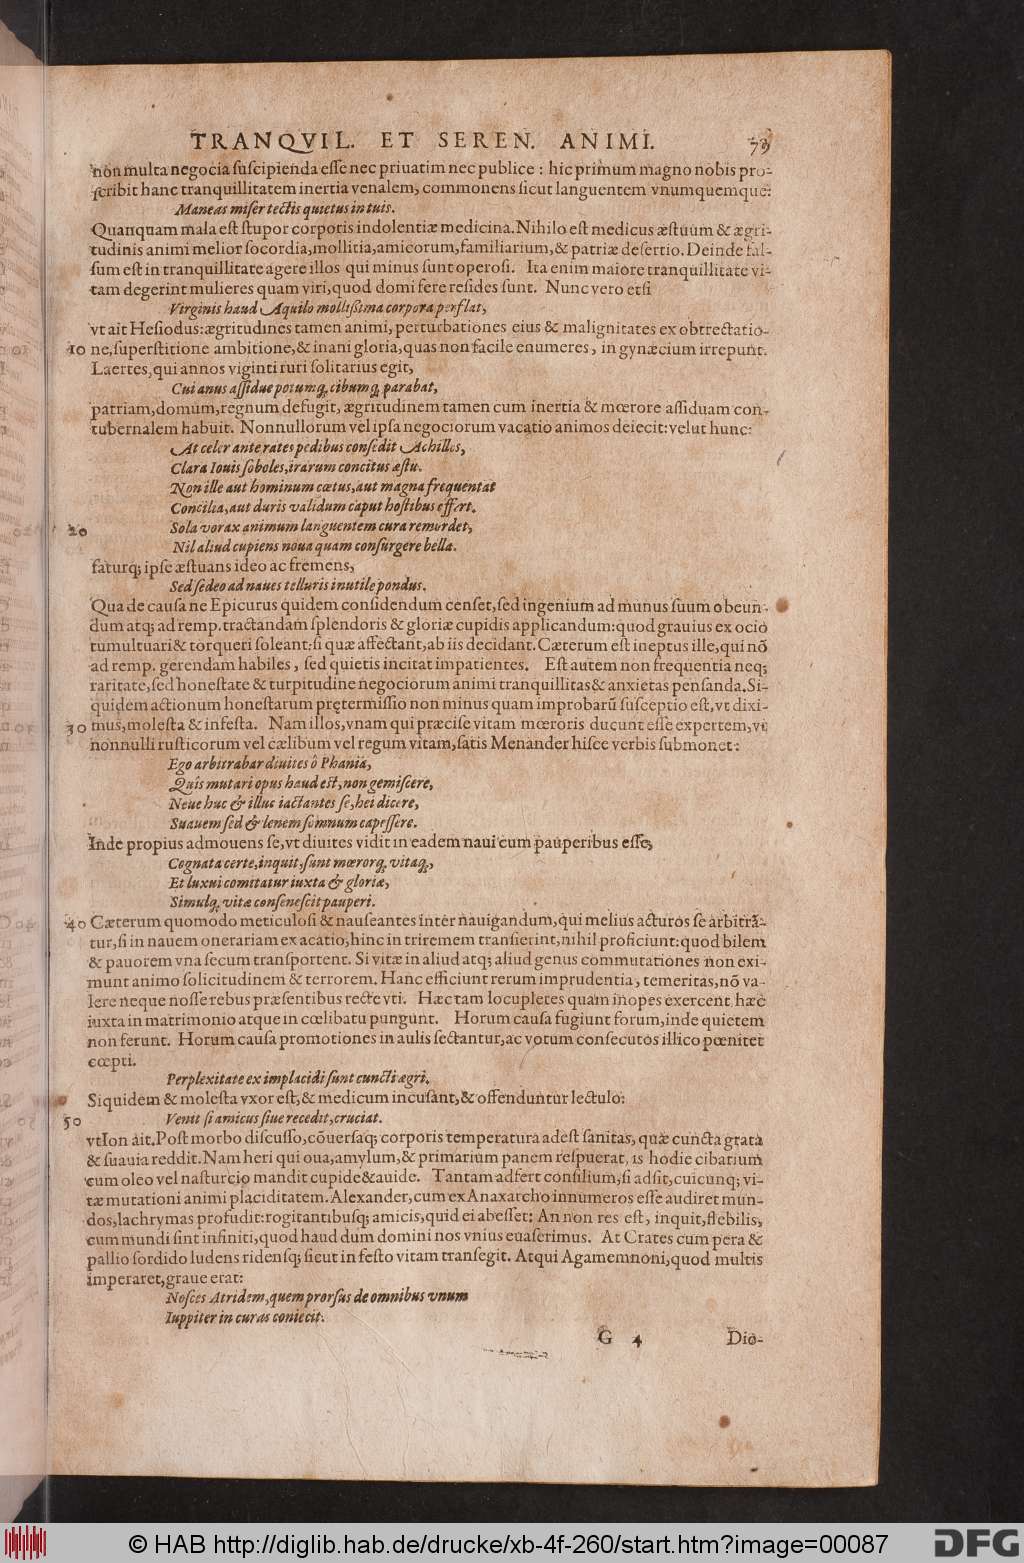 TRANQVIL. ET SEREN. ANIMI. 79
non multa negocia suscipienda esse nec priuatim nec publice : hic primum magno nobis pro-
scribit hanc tranquillitatem inertia venalem, commonens sicut languentem vnumquemque:
Maneas miser tectis quietus in tuis.
Quanquam mala est stupor corporis indolentiæ medicina. Nihilo est medicus æstuum & ægri-
tudinis animi melior socordia, mollitia, amicorum, familiarium, & patriæ desertio. Deinde fal-
sum est in tranquillitate agere illos qui minus sunt operosi. Ita enim maiore tranquillitate vi-
tam degerint mulieres quam viri, quod domi fere resides sunt. Nunc vero etsi
Virginis haud Aquilo mollissima corpora perflat,
vt ait Hesiodus: ægritudines tamen animi, perturbationes eius & malignitates ex obtrectatio-
10 ne, superstitione ambitione, & inani gloria, quas non facile enumeres, in gynæcium irrepunt.
Laertes, qui annos viginti ruri solitarius egit,
Cui anus assidue potumq; cibumq; parabat,
patriam, domum, regnum defugit, ægritudinem tamen cum inertia & mœrore assiduam con-
tubernalem habuit. Nonnullorum vel ipsa negociorum vacatio animos deiecit: velut hunc:
At celer ante rates pedibus consedit Achilles,
Clara Iouis soboles, irarum concitus æstu.
Non ille aut hominum cœtus, aut magna frequentat
Concilia, aut duris validum caput hostibus effert.
20 Sola vorax animum languentem cura remordet,
Nil aliud cupiens noua quam consurgere bella.
faturq; ipse æstuans ideo ac fremens,
Sed sedeo ad naues telluris inutile pondus.
Qua de causa ne Epicurus quidem considendum censet, sed ingenium ad munus suum obeun-
dum atq; ad remp. tractandam splendoris & gloriæ cupidis applicandum: quod grauius ex ocio
tumultuari & torqueri soleant: si quæ affectant, ab iis decidant. Cæterum est ineptus ille, qui nō
ad remp. gerendam habiles, sed quietis incitat impatientes. Est autem non frequentia neq;
raritate, sed honestate & turpitudine negociorum animi tranquillitas & anxietas pensanda. Si-
quidem actionum honestarum prętermissio non minus quam improbarū susceptio est, vt dixi-
30 mus, molesta & infesta. Nam illos, vnam qui præcise vitam mœroris ducunt esse expertem, vt
nonnulli rusticorum vel cælibum vel regum vitam, satis Menander hisce verbis submonet:
Ego arbitrabar diuites ô Phania,
Quîs mutari opus haud est, non gemiscere,
Neue huc & illuc iactantes se, hei dicere,
Suauem sed & lenem somnum capessere.
Inde propius admouens se, vt diuites vidit in eadem naui cum pauperibus esse,
Cognata certe, inquit, sunt mœrorq; vitaq;,
Et luxui comitatur iuxta & gloriæ,
Simulq; vitæ consenescit pauperi.
40 Cæterum quomodo meticulosi & nauseantes inter nauigandum, qui melius acturos se arbitrā-
tur, si in nauem onerariam ex acatio, hinc in triremem transierint, nihil proficiunt: quod bilem
& pauorem vna secum transportent. Si vitæ in aliud atq; aliud genus commutationes non exi-
munt animo solicitudinem & terrorem. Hanc efficiunt rerum imprudentia, temeritas, nō va-
lere neque nosse rebus præsentibus recte vti. Hæc tam locupletes quam inopes exercent, hæc
iuxta in matrimonio atque in cœlibatu pungunt. Horum causa fugiunt forum, inde quietem
non ferunt. Horum causa promotiones in aulis sectantur, ac votum consecutos illico pœnitet
cœpti.
Perplexitate ex implacidi sunt cuncti ægri.
Siquidem & molesta vxor est, & medicum incusant, & offenduntur lectulo:
50 Venit si amicus siue recedit, cruciat.
vt Ion ait. Post morbo discusso, cōuersaq; corporis temperatura adest sanitas, quæ cuncta grata
& suauia reddit. Nam heri qui oua, amylum, & primarium panem respuerat, is hodie cibarium
cum oleo vel nasturcio mandit cupide & auide. Tantam adfert consilium, si adsit, cuicunq; vi-
tæ mutationi animi placiditatem. Alexander, cum ex Anaxarcho innumeros esse audiret mun-
dos, lachrymas profudit: rogitantibusq; amicis, quid ei abesset: An non res est, inquit, flebilis,
cum mundi sint infiniti, quod haud dum domini nos vnius euaserimus. At Crates cum pera &
pallio sordido ludens ridensq; sicut in festo vitam transegit. Atqui Agamemnoni, quod multis
imperaret, graue erat:
Nosces Atridem, quem prorsus de omnibus vnum
Iuppiter in curas coniecit.
G 4 Dio-
© HAB http://diglib.hab.de/drucke/xb-4f-260/start.htm?image=00087
DFG